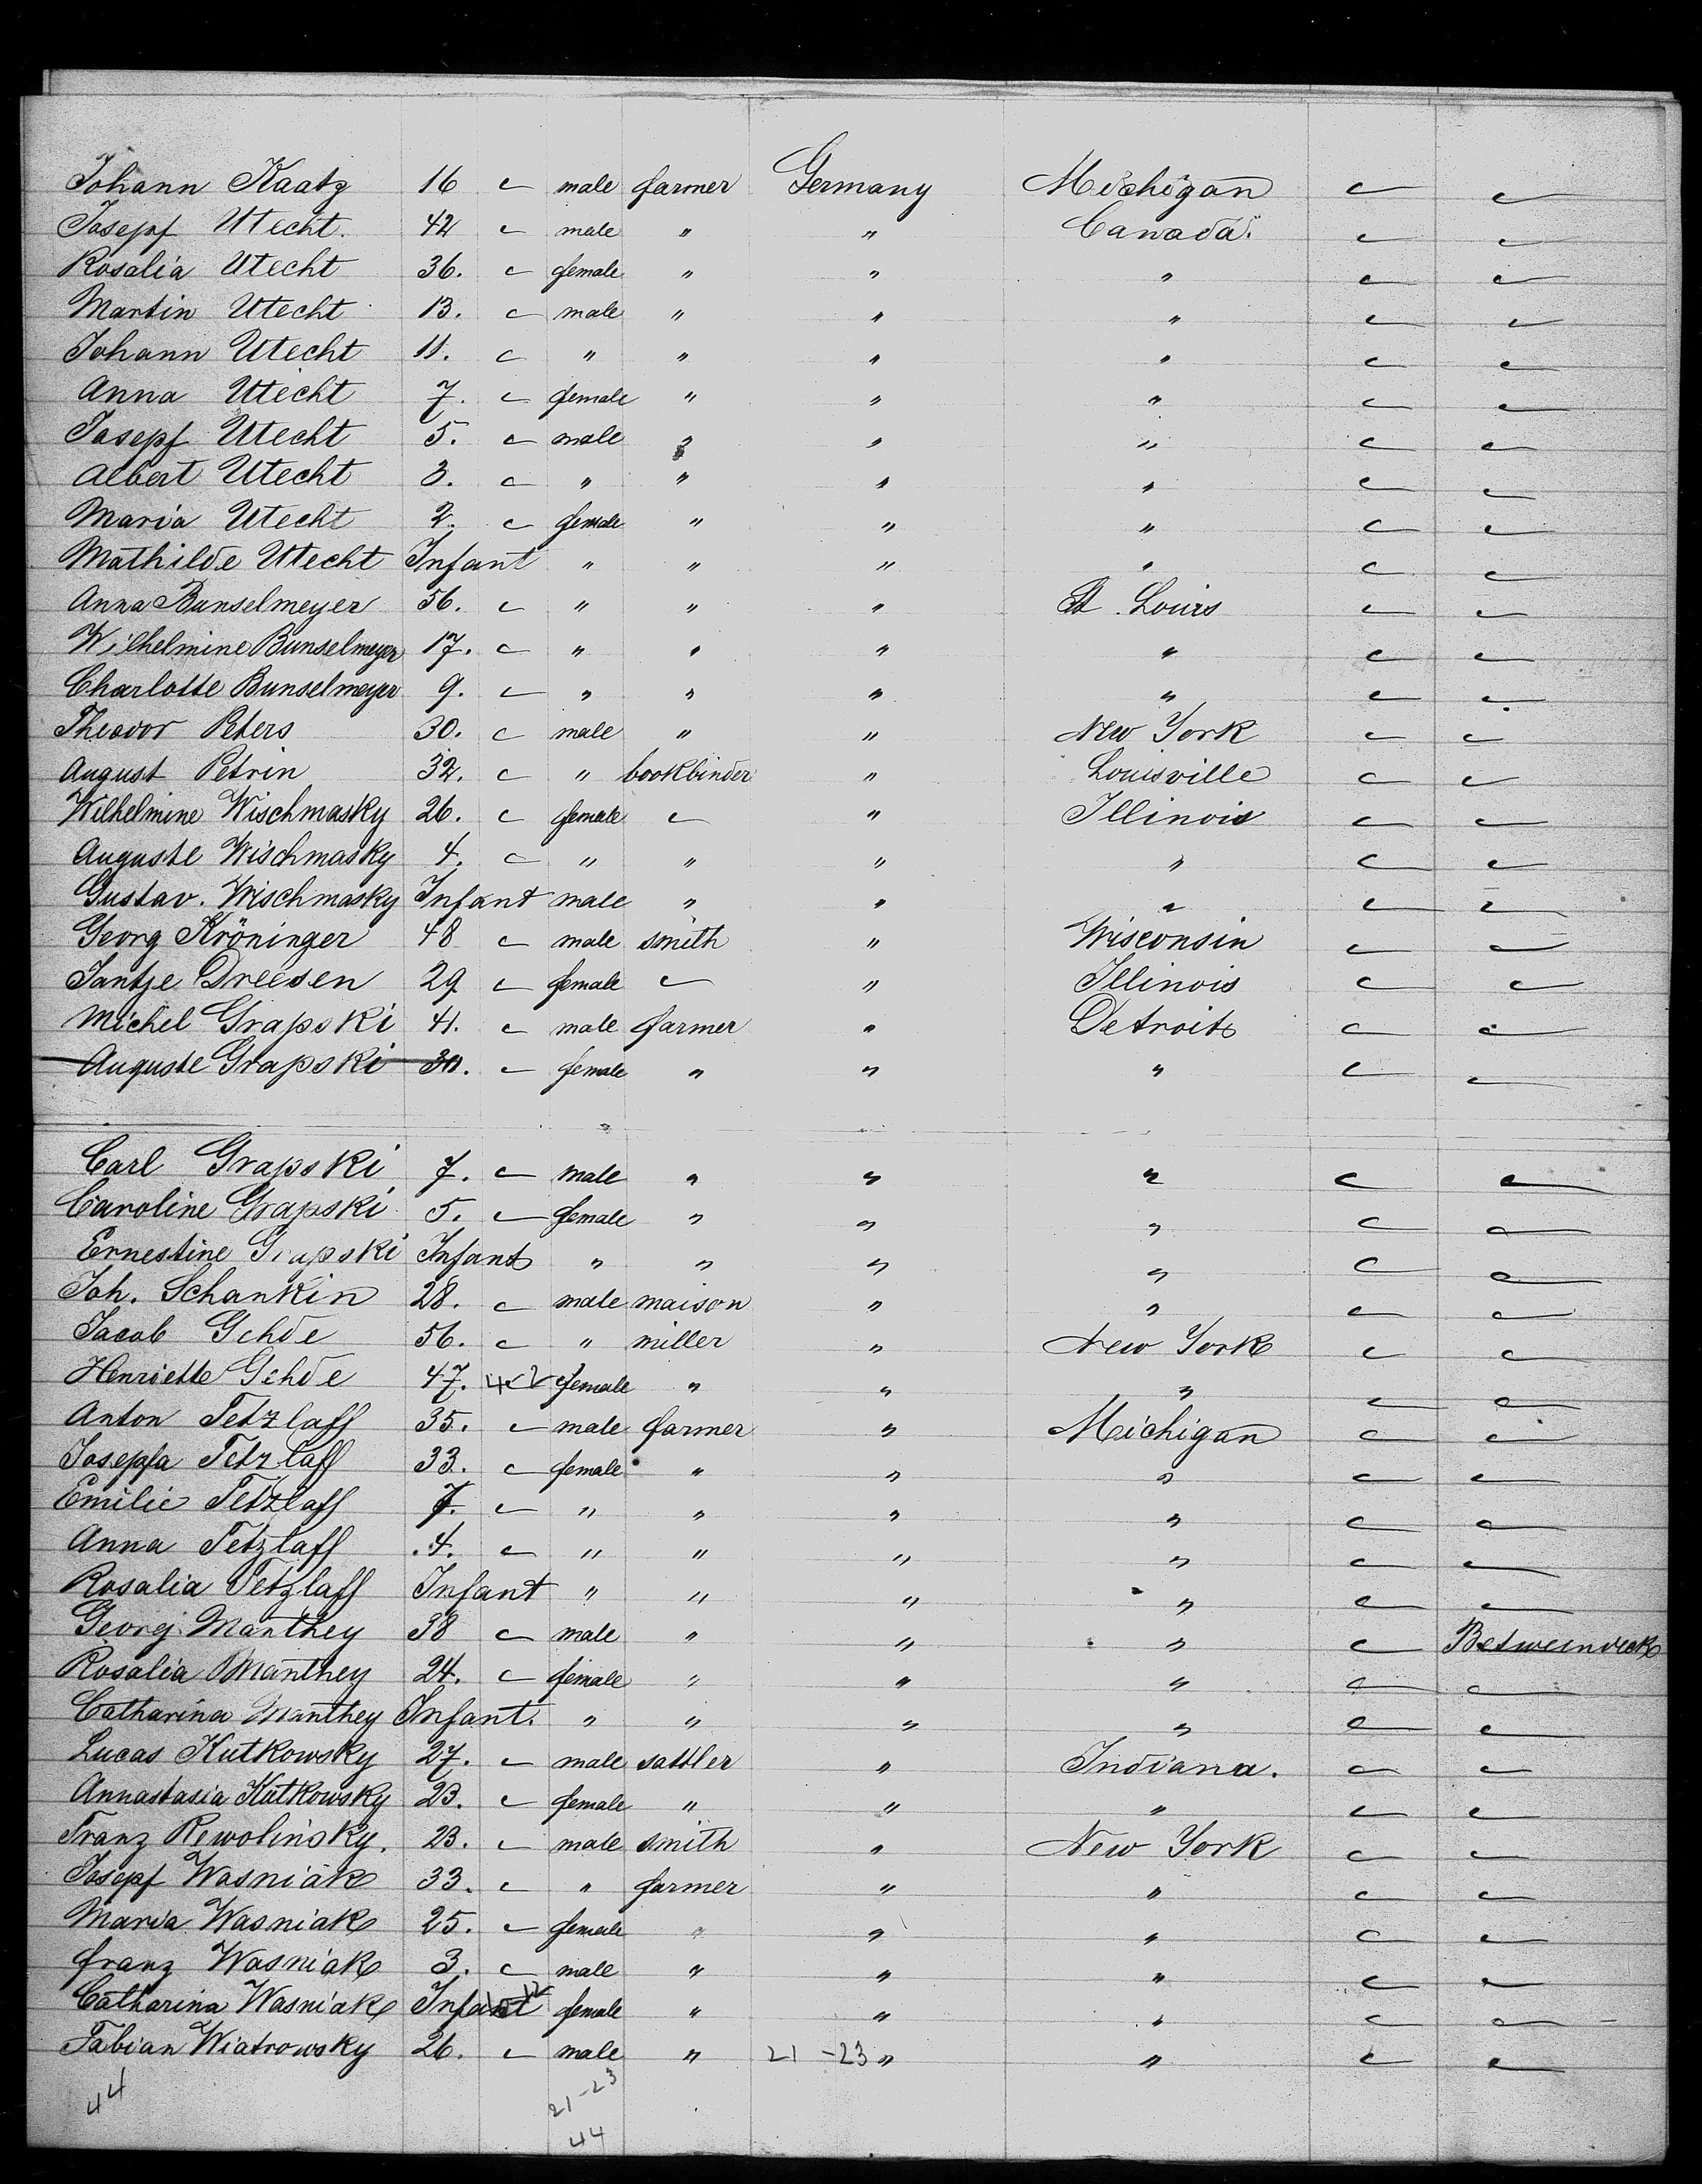 Johann Kaatz 16 c male farmer Germany Michigan c c
Josepf Utecht. 42 c male " " Canada. c c
Rosalia Utecht 36. c female " " " c c
Martin Utecht 13. c male " " " c c
Johann Utecht 11. c " " " " c c
Anna Utecht 7. c female " " " c c
Josepf Utecht 5. c male " " " c c
Albert Utecht 3. c " " " " c c
Maria Utecht 2. c female " " " c c
Mathilde Utecht Infant " " " " c c
Anna Bunselmeyer 56. c " " " St. Louis c c
Wilhelmine Bunselmeyer 17. c " " " " c c
Charlotte Bunselmeyer 9. c " " " " c c
Theodor Peters 30. c male " " New York c c
August Petrin 32. c " bookbinder " Louisville c c
Wilhelmine Wischmasky 26. c female c " Illinois c c
Auguste Wischmasky 4. c " " " " c c
Gustav. Wischmasky Infant male " " " c c
Georg Kröninger 48 c male smith " Wisconsin c c
Jantje Dreesen 29 c female c " Illinois c c
Michel Grapski 41. c male farmer " Detroit c c
Auguste Grapski 30. c female " " " c c
Carl Grapski 7. c male " " " c c
Caroline Grapski 5. c female " " " c c
Ernestine Grapski Infant " " " " c c
Joh. Schankin 28. c male maison " " c c
Jacob Gehde 56. c " miller " New York c c
Henriette Gehde 47. female " " " c c
Anton Tetzlaff 35. c male farmer " Michigan c c
Josepfa Tetzlaff 33. c female " " " c c
Emilie Tetzlaff 7. c " " " " c c
Anna Tetzlaff 4. c " " " " c c
Rosalia Tetzlaff Infant " " " " c c
Georg Manthey 38 c male " " " c Betweendeck
Rosalia Manthey 24. c female " " " c c
Catharina Manthey Infant. " " " " c c
Lucas Kutkowsky 27. c male sattler " Indiana. c c
Annastasia Kutkowsky 23. c female " " " c c
Franz Rewolinsky. 23. c male smith " New York c c
Josepf Wasniak 33. c " farmer " " c c
Maria Wasniak 25. c female " " " c c
franz Wasniak 3. c male " " " c c
Catharina Wasniak Infant female " " " c c
Fabian Wiatrowsky 26. c male " 21-23 " " c c
44 21-23
44